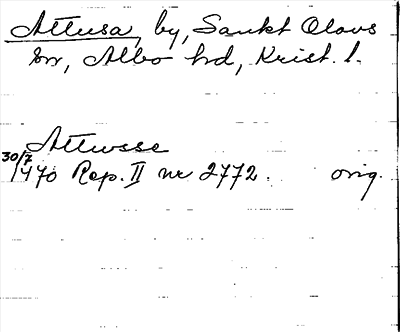 Attusa, by, Sankt Olovs
sn, Albo hd, Krist. l.
Attusse
30/7 1470 Rep. II nr 2772. orig.